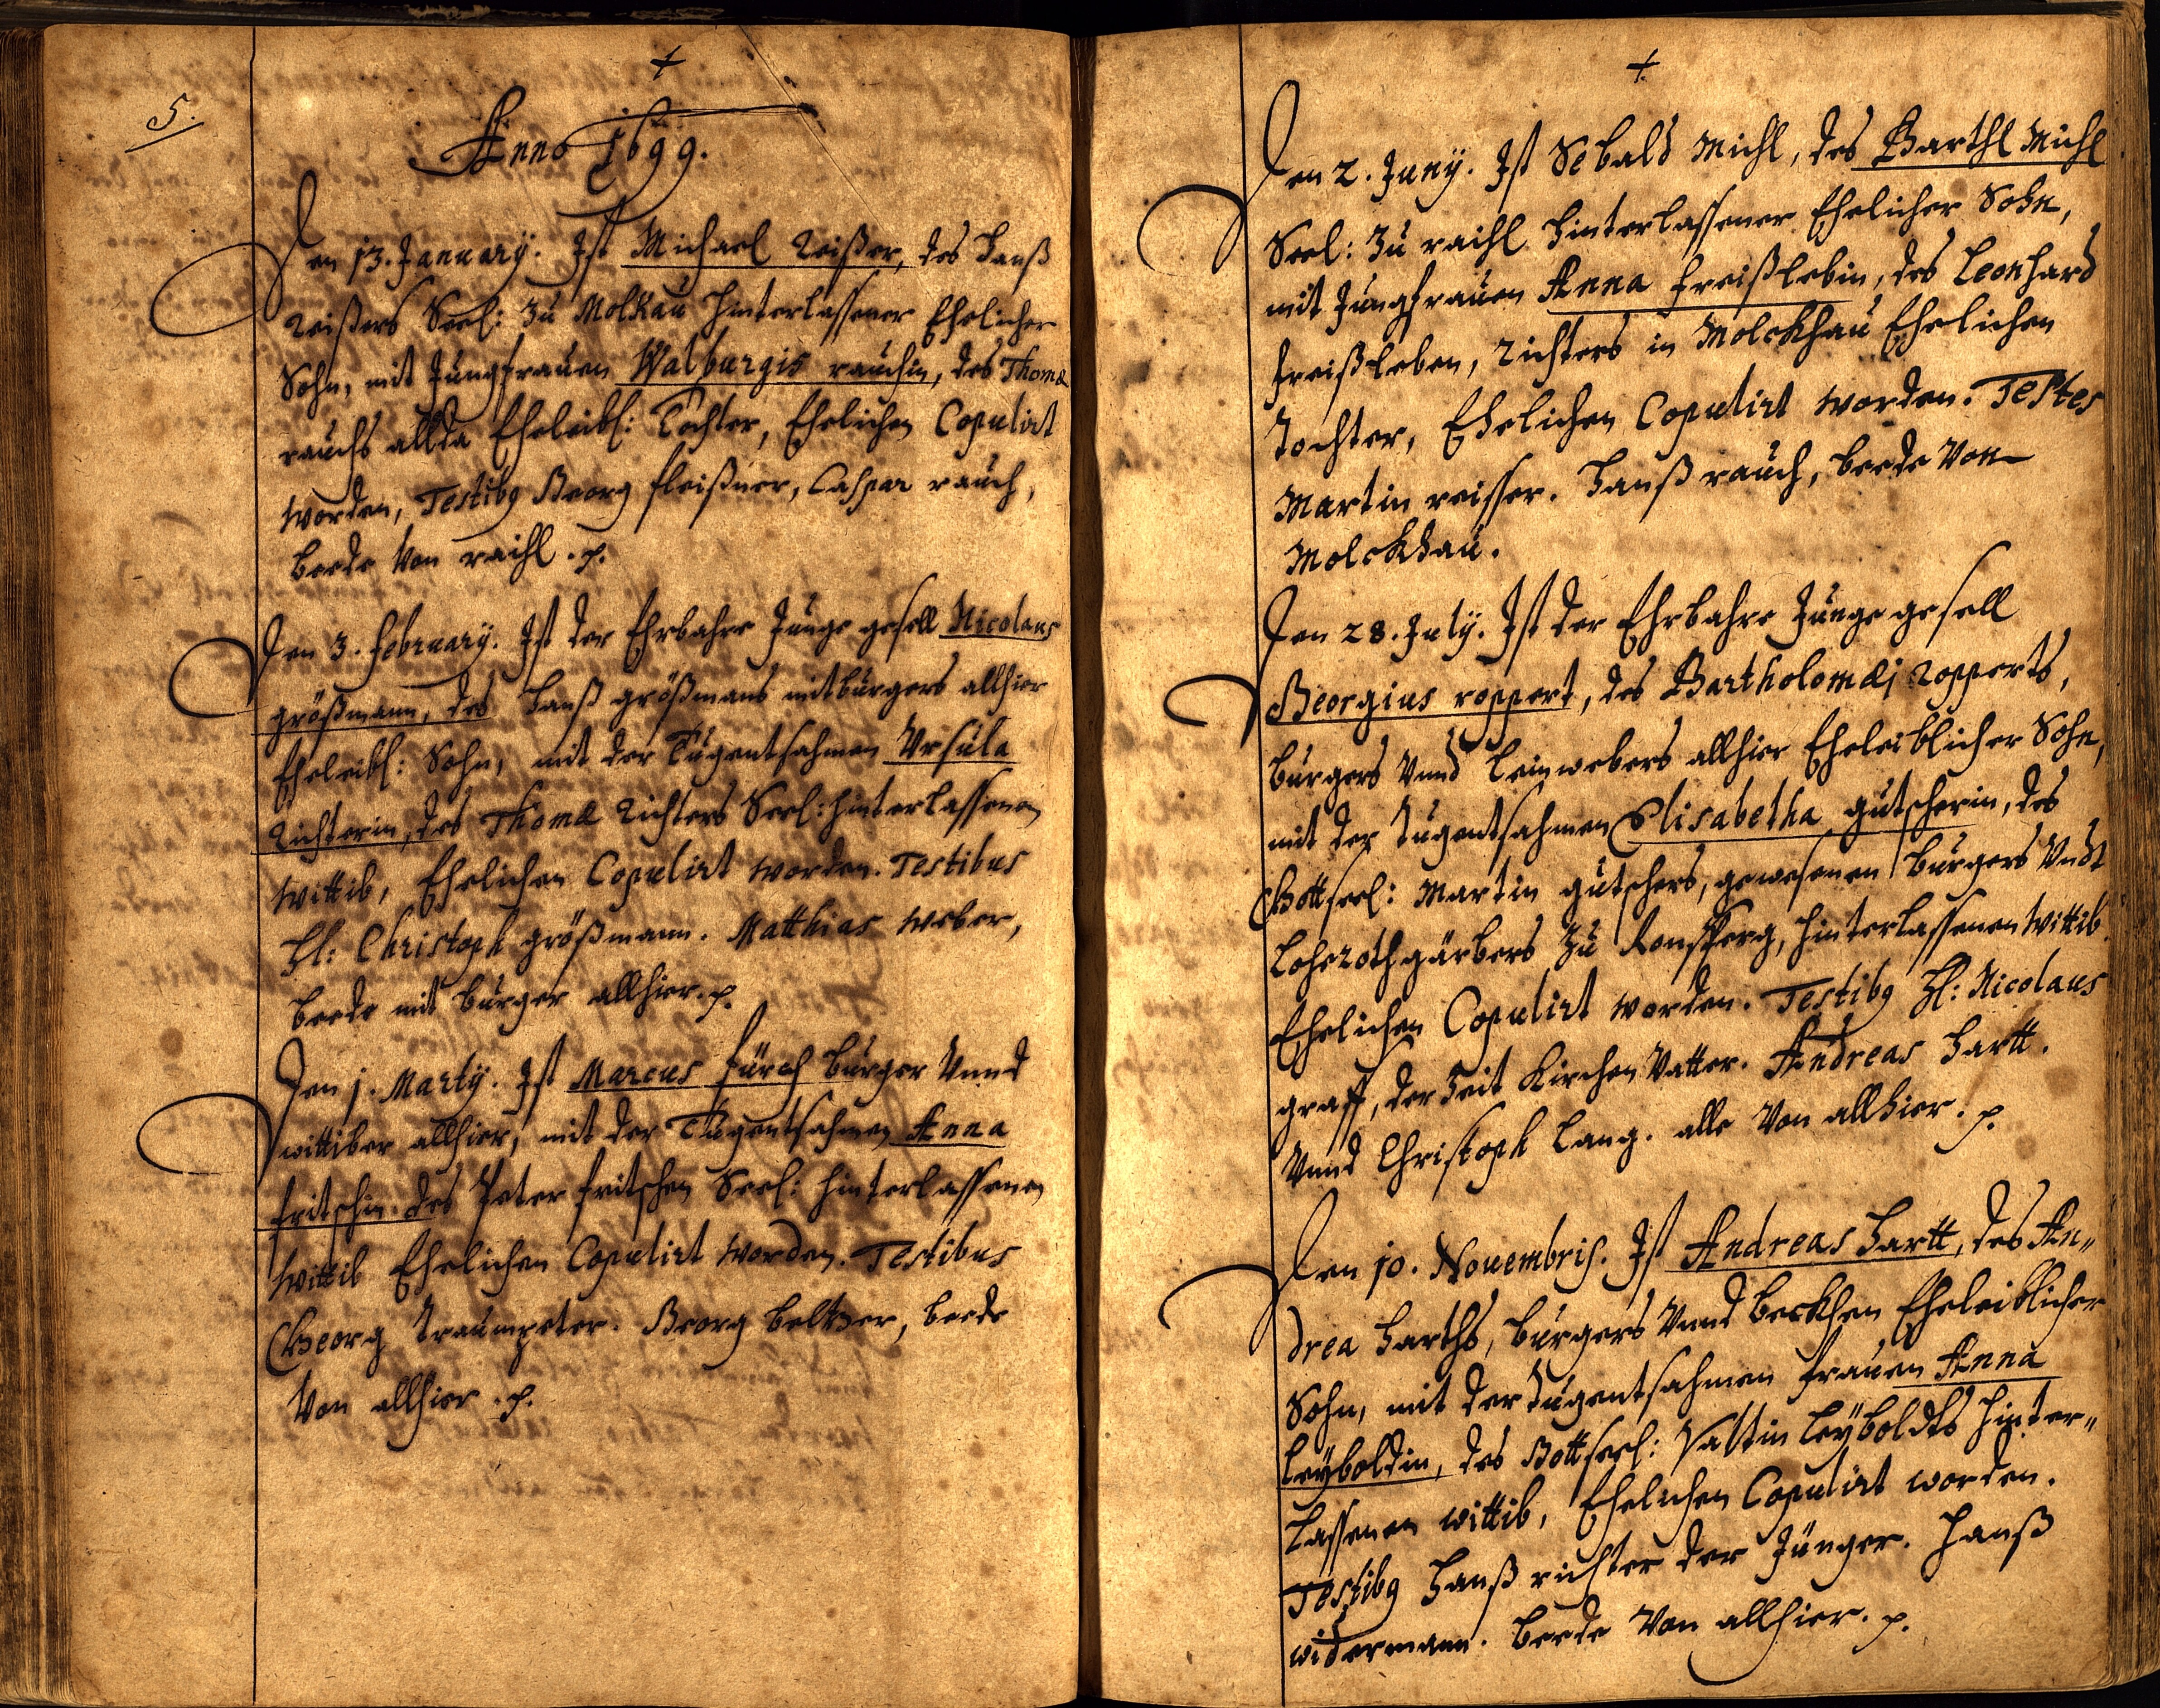 5.
+
Anno 1699.
Den 13. January. Ist Michael Reißer, des Hanß
Reißers Seel: Zu Molkau hinterlassener Ehelicher
Sohn, mit Jungfrauen Walburgis rauchin, des Thomæ
rauchs allda Eheleibl: Tochter, Ehelichen Copulirt
worden, Testibg Georg fleißner, Caspar rauch,
beede Von raihl. p.
Den 3. february. Ist der Ehrbahre Junge gesell Nicolaus
größmann, des Hanß größmans mitburgers allhier
Eheleibl: Sohn, mit der Tugentsahmen Ursula
Richterin, des Thomæ Richters Seel: hinterlassenen
Wittib, Ehelichen Copulirt worden. Testibus
Hl: Christoph größmann. Matthias Weber,
beede mit burger allhier. p.
Den 1. Marty. Ist Marcus fürch burger Vnnd
wittiber allhier, mit der Tugentsahmen Anna
fritschin des Peter fritschen Seel: hinterlassenen
Wittib Ehelichen Copulirt worden. Testibus
Georg Traumpeter. Georg beltzer, beede
Von allhier. p.
+
Den 2. Juny. Ist Sebald Michl, des Barthl Michl
Seel: Zu raihl hinterlassener Ehelicher Sohn,
mit Jungfrauen Anna freißlebin, des Leonhard
freißleben, Richters in Molckhau Ehelichen
Tochter, Ehelichen Copulirt worden. Testes
Martin reisser. Hanß rauch, beede Von
Molckhau.
Den 28. July. Ist der Ehrbahre Junge gesell
Georgius roppert, des Bartholomæj Ropperts,
burgers Vnnd Leinwebers allhier Eheleiblicher Sohn,
mit der Tugentsahmen Elisabetha gutscherin, des
Gottseel: Martin gutschers, gewesenen burgers Vndt
Lohrothgärbers Zu Ronsperg, hinterlassenen Wittib
Ehelichen Copulirt worden. Testibg Hl: Nicolaus
graff, der Zeit Kirchen Vatter. Andreas Hartt.
Vnnd Christoph Lang. alle Von allhier. p.
Den 10. Nouembris. Ist Andreas Hartt, des An„
drea Harths, burgers Vnnd beckhen Eheleiblicher
Sohn, mit der Tugentsahmen frauen Anna
Leyboldin, des Gottseel: Valtin Leyboldts hinter„
lassenen wittib, Ehelichen Copulirt worden.
Testibg Hanß richter der Jünger. Hanß
widermann. beede Von allhier. p.